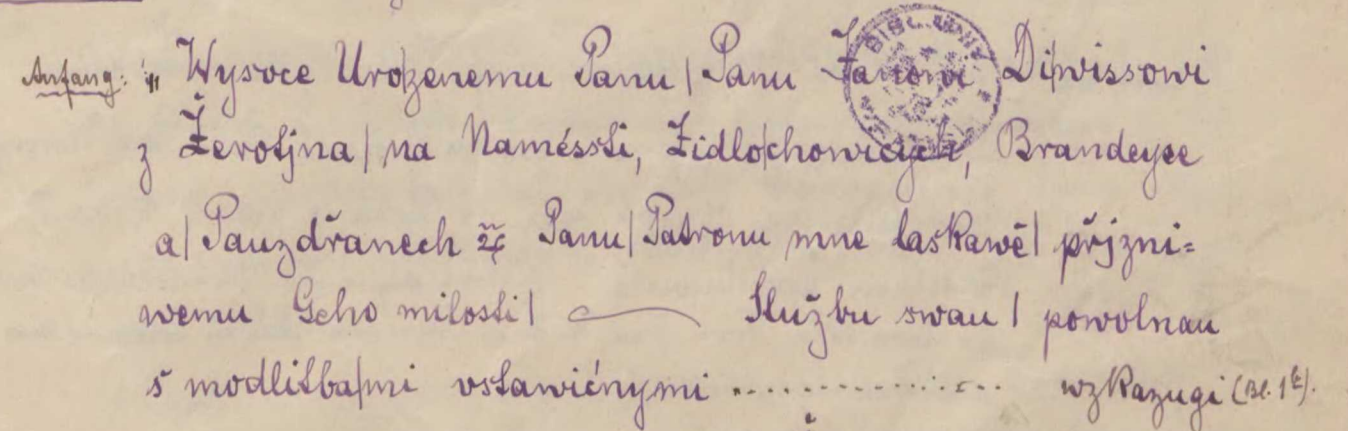 Anfang: „Wysoce Urozenemu Panu | Panu Janowi Di|wissowi
z Žerotjna | na Naméssti, Židlo|chowicých, Brandeyse
a| Pauzdřanech ꝛc̃ Panu | Patronu mne laskawě | přjzni=
wemu Geho milosti | — Službu swau | powolnau
s modlitba|mi vstawičnými .............. wzkazugi (Bl. 1b).